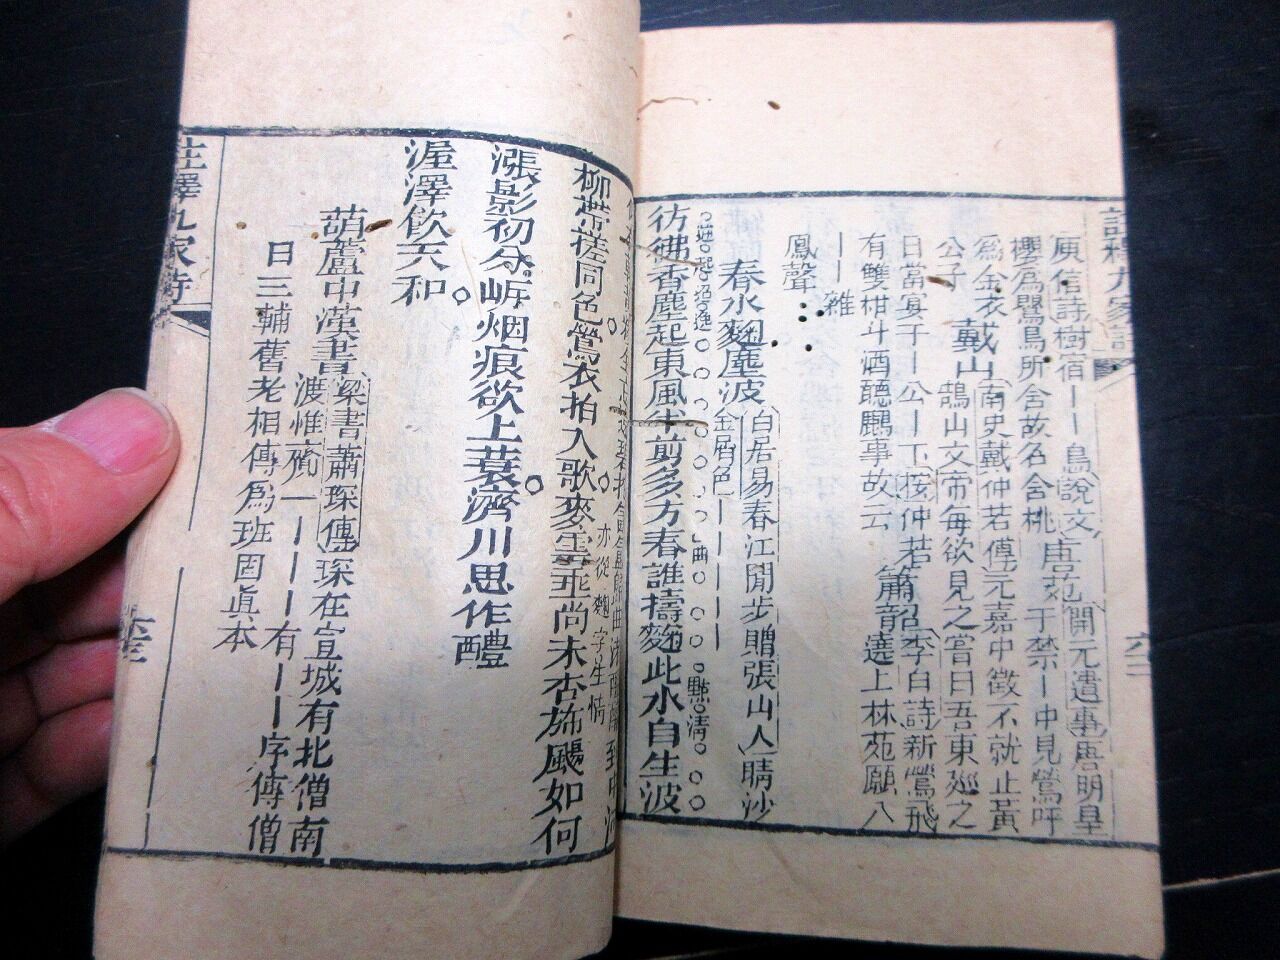 註釋九家詩
庾信詩樹宿｜｜鳥說文唐苑開元遺事唐明皇
櫻為鸎鳥所含故名含桃于禁｜中見鶯呼
為金衣
公子
戴山
南史戴仲若傳元嘉中徵不就止黃
鵠山文帝每欲見之嘗曰吾東廵之
日當宴于｜公｜下按仲若
有雙柑斗酒聽鸝事故云
簫韶
李白詩新鶯飛
遶上林苑願入
鳳聲
｜｜雜
春水麴塵波
白居易春江閒步贈張山人晴沙
金屑色｜｜｜｜
彷彿香塵起東風半剪多方春誰擣麴此水自生波
柳帶搓同色鶯衣拍入歌麥雲垂尚未杏旆颺如何
亦從麴字生情
漲影初分岸烟痕欲上蓑濟川思作醴
渥澤飲天和
葫蘆中漢書
梁書蕭琛傳琛在宣城有北僧南
渡惟賷一｜｜｜有｜｜序傳僧
曰三輔舊老相傳為班固眞本
註釋九家詩